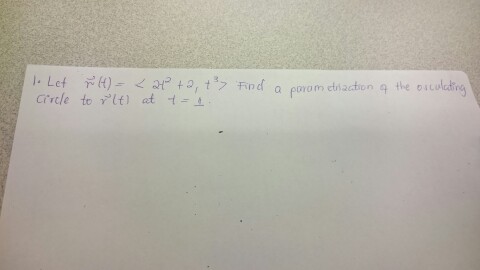 1. Let r⃗(t) = < 2t² + 2, t³ > Find a parametrization of the osculating
circle to r⃗(t) at t = 1.